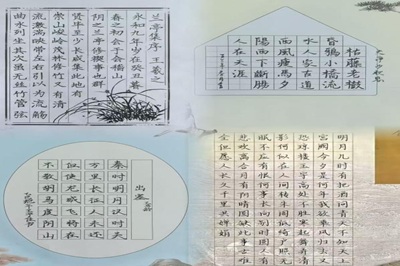 兰亭集序 王羲之
永和九年岁在癸丑暮
春之初会于会稽山
阴兰亭修禊事也群
贤毕至少长咸集此地有
崇山峻岭茂林修竹又有清
流激湍映带左右引以为流觞
曲水列坐其次虽无丝竹管弦
天净沙 秋思
枯藤老樹
昏鴉小橋流
水人家古道
西風瘦馬夕
陽西下斷腸
人在天涯
出塞
秦时明月汉时关
万里长征人未还
但使龙城飞将在
不教胡马度阴山
明月几时有把酒问青天不知天上
宫阙今夕是何年我欲乘风归去又
恐琼楼玉宇高处不胜寒起舞弄清
影何似在人间转朱阁低绮户照无
眠不应有恨何事长向别时圆人有
悲欢离合月有阴晴圆缺此事古难
全但愿人长久千里共婵娟